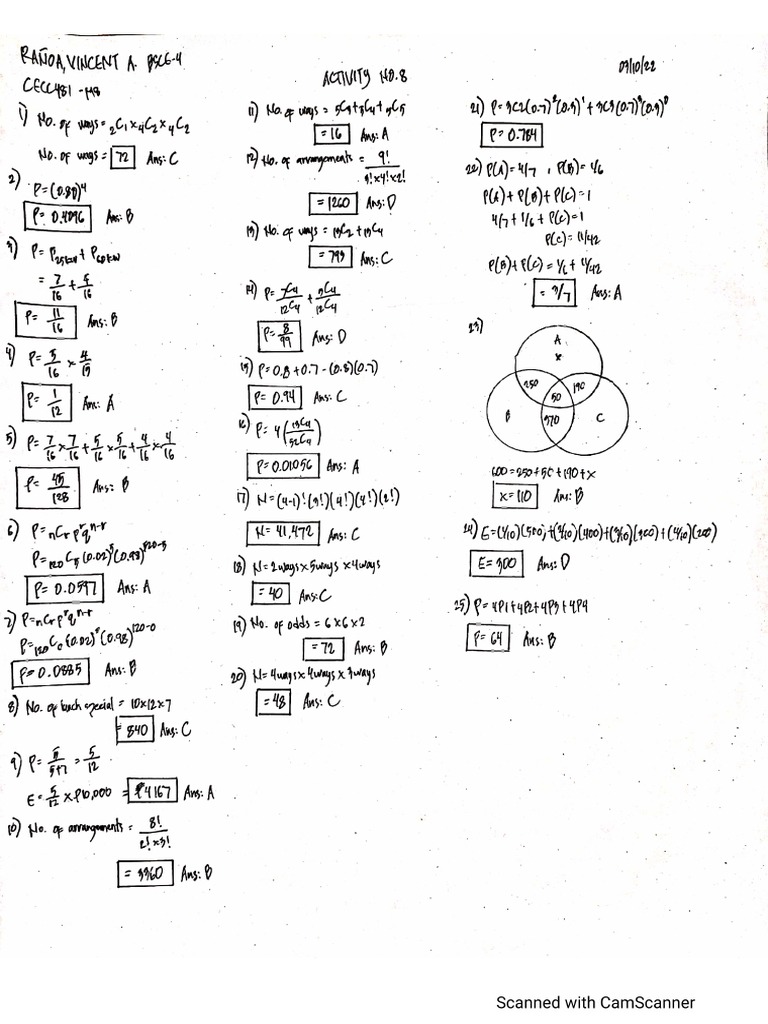 RAÑOA, VINCENT A. BSCE-4
CECC481 - M8
ACTIVITY NO. 8
03/10/22
1) No. of ways = ₂C₁ x ₄C₂ x ₄C₂
No. of ways = 72 Ans: C
2) P = (0.80)⁴
P = 0.4096 Ans: B
3) P = P25kW + P60kW
= 7/16 + 4/16
P = 11/16 Ans: B
4) P = 5/16 x 4/15
P = 1/12 Ans: A
5) P = 7/16 x 7/16 + 5/16 x 5/16 + 4/16 x 4/16
P = 45/128 Ans: B
6) P = nCr pʳ qⁿ⁻ʳ
P = ₁₂₀C₅ (0.02)⁵ (0.98)¹²⁰⁻⁵
P = 0.0597 Ans: A
7) P = nCr pʳ qⁿ⁻ʳ
P = ₁₂₀C₀ (0.02)⁰ (0.98)¹²⁰⁻⁰
P = 0.0885 Ans: B
8) No. of lunch special = 10 x 12 x 7
= 840 Ans: C
9) P = 5/5+7 = 5/12
E = 5/12 x ₱10,000 = ₱4167 Ans: A
10) No. of arrangements = 8!/2! x 3!
= 3360 Ans: B
11) No. of ways = 5C3 + 5C4 + 5C5
= 16 Ans: A
12) No. of arrangements = 9!/3! x 4! x 2!
= 1260 Ans: D
13) No. of ways = 13C2 + 13C4
= 793 Ans: C
14) P = 7C4/12C4 + 5C4/12C4
P = 8/99 Ans: D
15) P = 0.8 + 0.7 - (0.8)(0.7)
P = 0.94 Ans: C
16) P = 4 (13C4/52C4)
P = 0.01056 Ans: A
17) N = (4-1)! (3!) (4!) (4!) (2!)
N = 41,472 Ans: C
18) N = 2 ways x 5 ways x 4 ways
= 40 Ans: C
19) No. of odds = 6 x 6 x 2
= 72 Ans: B
20) N = 4 ways x 4 ways x 3 ways
= 48 Ans: C
21) P = 3C2 (0.7)² (0.3)¹ + 3C3 (0.7)³ (0.3)⁰
P = 0.784
22) P(A) = 4/7 , P(B) = 1/6
P(A) + P(B) + P(C) = 1
4/7 + 1/6 + P(C) = 1
P(C) = 11/42
P(B) + P(C) = 1/6 + 11/42
= 3/7 Ans: A
23)
A
x
250
190
50
B
370
C
600 = 250 + 50 + 190 + x
x = 110 Ans: B
24) E = (1/10)(500) + (2/10)(400) + (3/10)(300) + (4/10)(200)
E = 300 Ans: D
25) P = 4P1 + 4P2 + 4P3 + 4P4
P = 64 Ans: B
Scanned with CamScanner